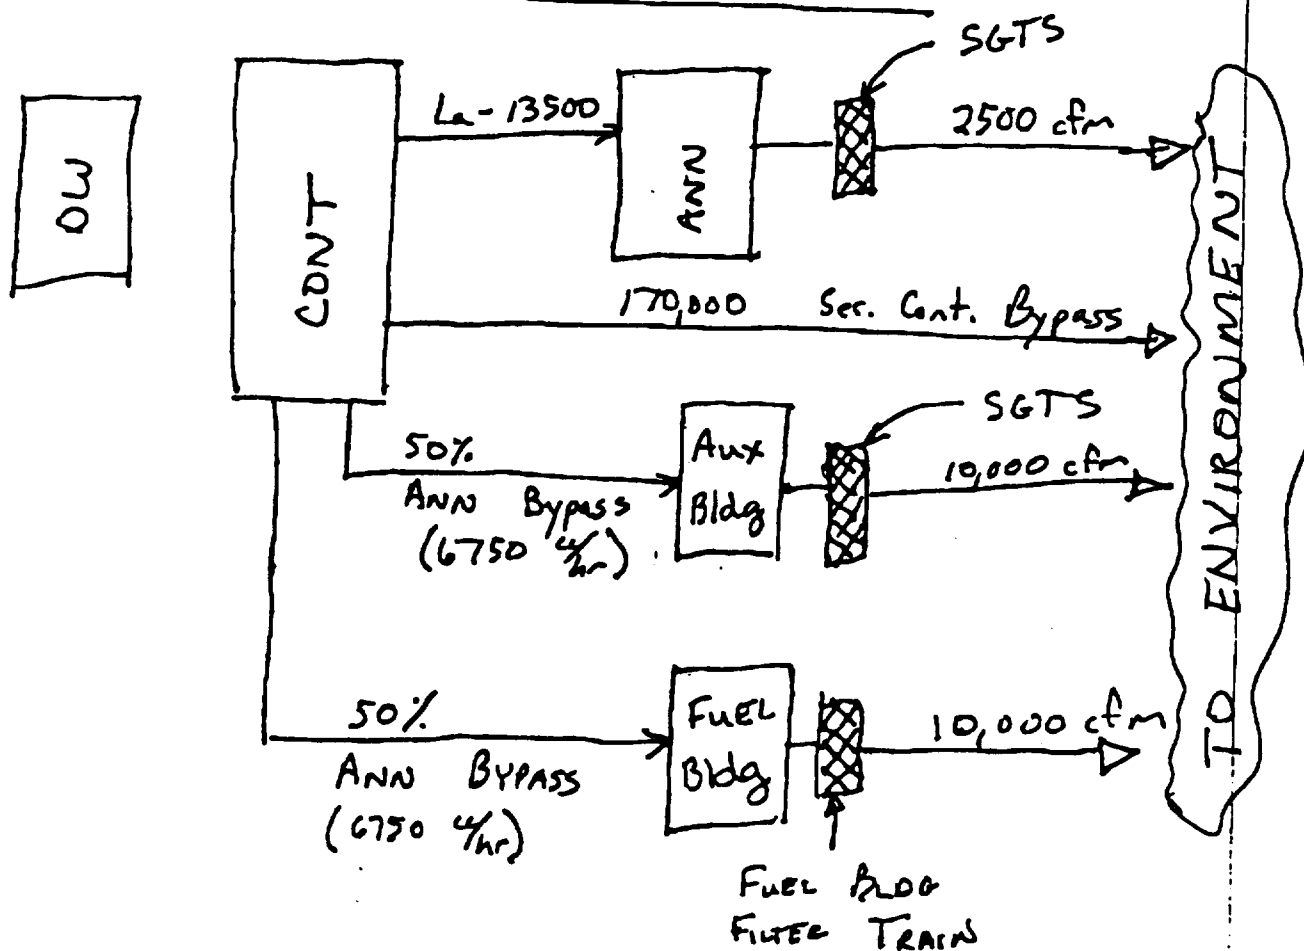 SGTS
DW
CONT
La - 13500
ANN
2500 cfm
170,000 Sec. Cont. Bypass
SGTS
50%
ANN Bypass
(6750 cc/hr)
Aux
Bldg
10,000 cfm
50%
ANN BYPASS
(6750 cc/hr)
FUEL
Bldg
10,000 cfm
FUEL BLDG
FILTER TRAIN
TO ENVIRONMENT